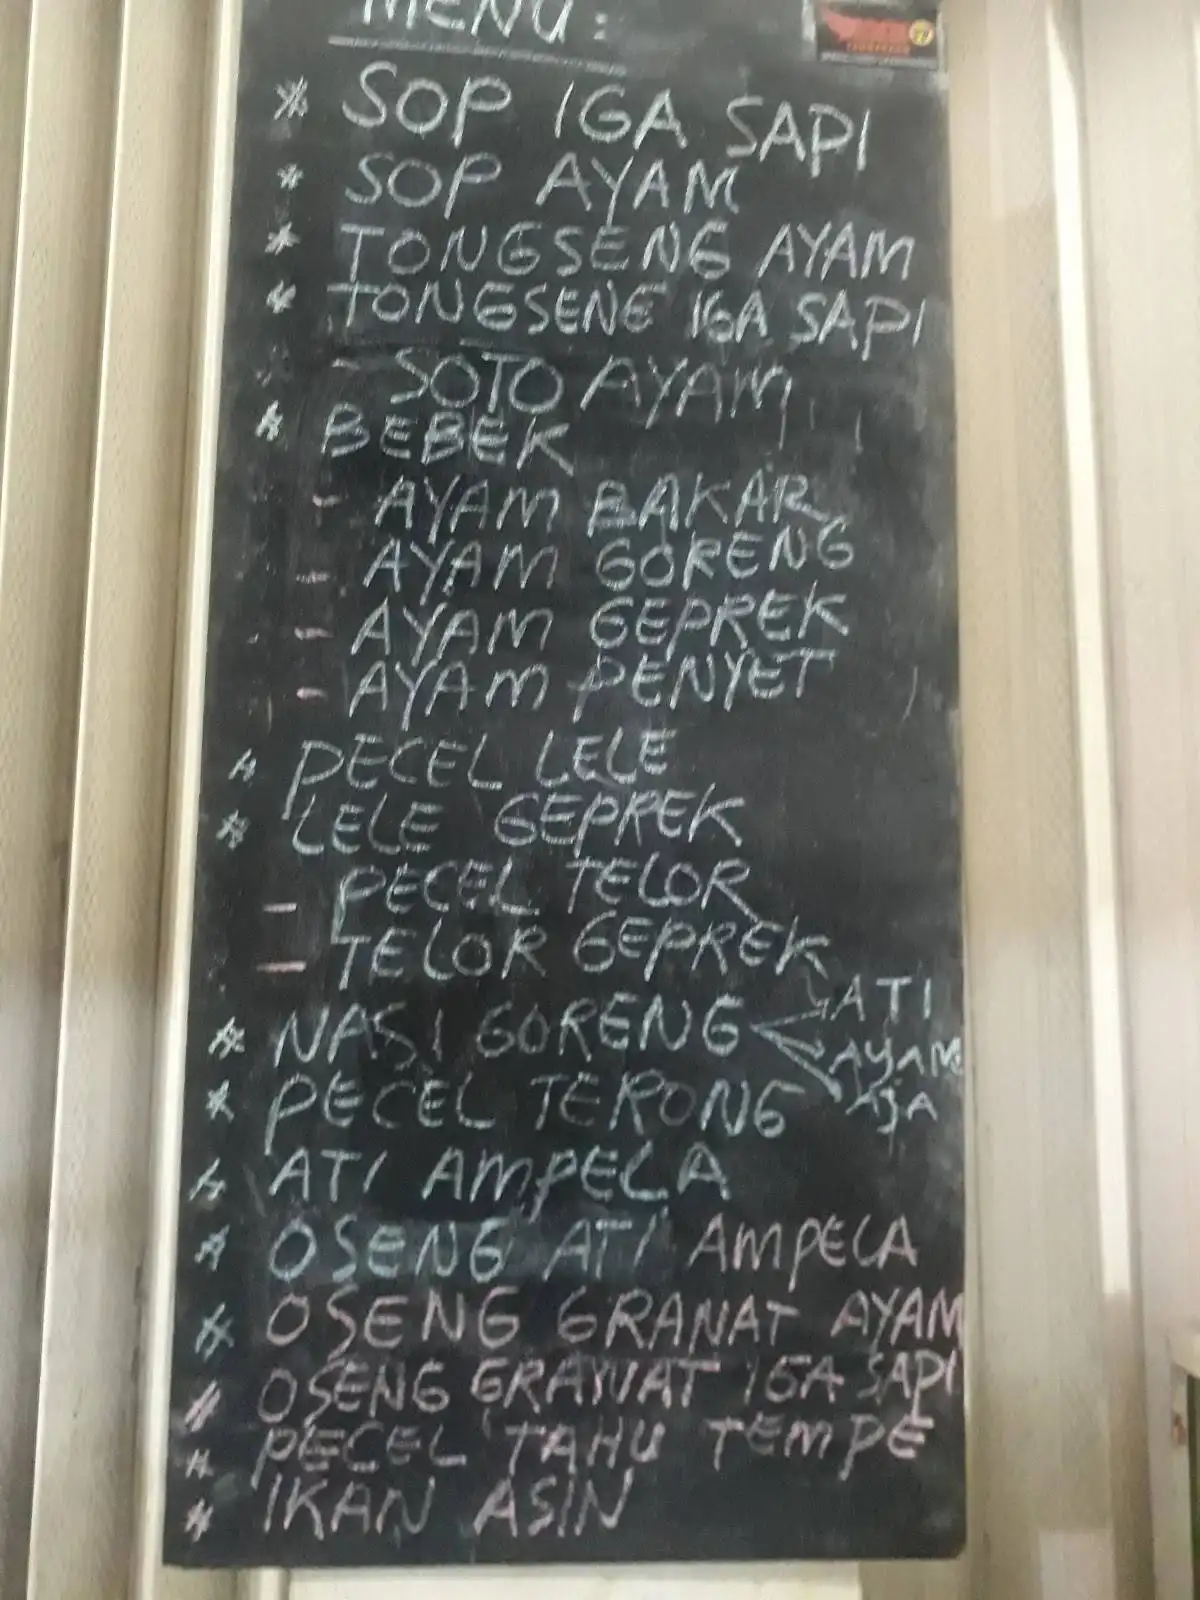 MENU :
* SOP IGA SAPI
* SOP AYAM
* TONGSENG AYAM
* TONGSENG IGA SAPI
- SOTO AYAM
* BEBEK
- AYAM BAKAR
- AYAM GORENG
- AYAM GEPREK
- AYAM PENYET
* PECEL LELE
* LELE GEPREK
- PECEL TELOR
- TELOR GEPREK
* NASI GORENG
ATI
AYAM
AJA
* PECEL TERONG
* ATI AMPELA
* OSENG ATI AMPELA
* OSENG GRANAT AYAM
* OSENG GRANAT IGA SAPI
* PECEL TAHU TEMPE
* IKAN ASIN